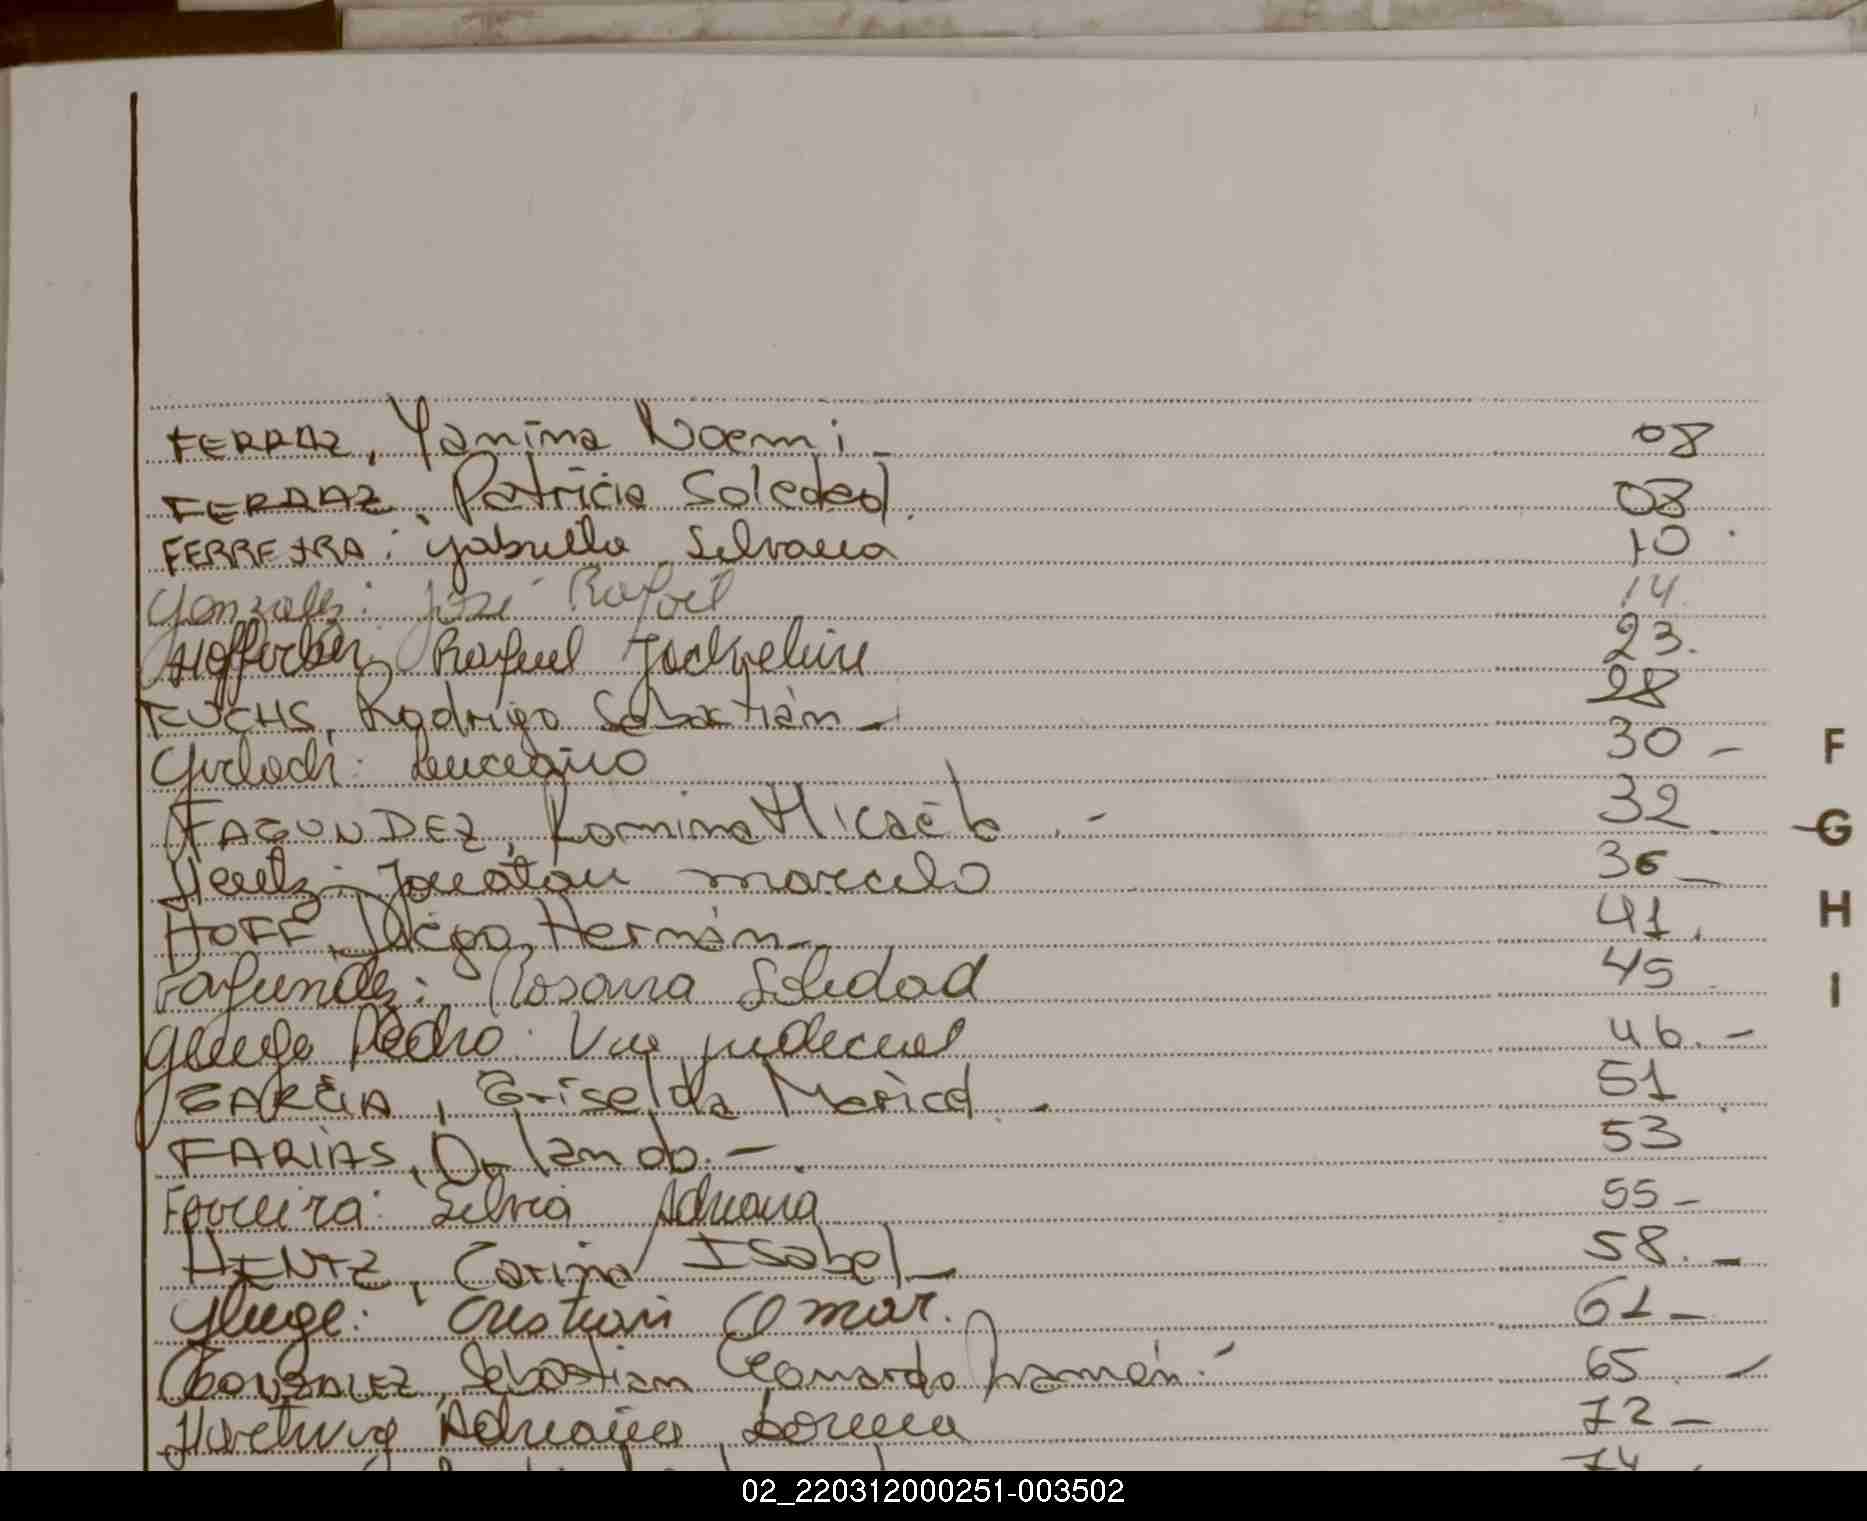 FERRAZ, Yanina Noemi 08
FERRAZ, Patricia Soledad. 08
FERREIRA: Gabriella Silvana 10
Gonzalez: José Rafael 14.
Raquel Jackeline 23.
FUCHS, Rodrigo Sebastián - 28
Gerloch: Luciano 30 -
FAGUNDEZ, Romina Micaela . - 32. F
Hentz: Jonatan Marcelo 36 - G
HOFF, Diego Hernán - 41. H
Fagundez: Rosana Soledad 45 I
Gluge Pedro: Via judicial 46. -
GARCIA, Griselda Marical . - 51
FARIAS, Orlando. - 53
Ferreira: Silvia Adriana 55 -
HENTZ, Carina Isabel - 58. -
Gluge: Cristian Omar. 61 -
GONZALEZ, Sebastian Leonardo Ramón. - 65 -
Hartwig Adriana Lorena 72 -
74
02_220312000251-003502